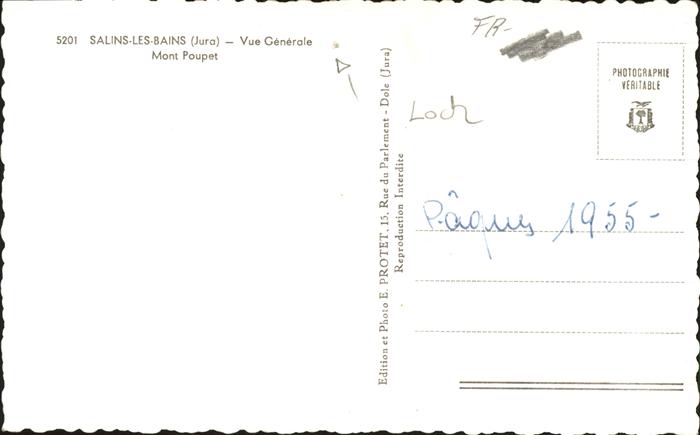 5201 SALINS-LES-BAINS (Jura) — Vue Générale
Mont Poupet
Edition et Photo E. PROTET, 15, Rue du Parlement - Dole (Jura)
Reproduction Interdite
FR-
PHOTOGRAPHIE
VÉRITABLE
Loch
Pâques 1955-